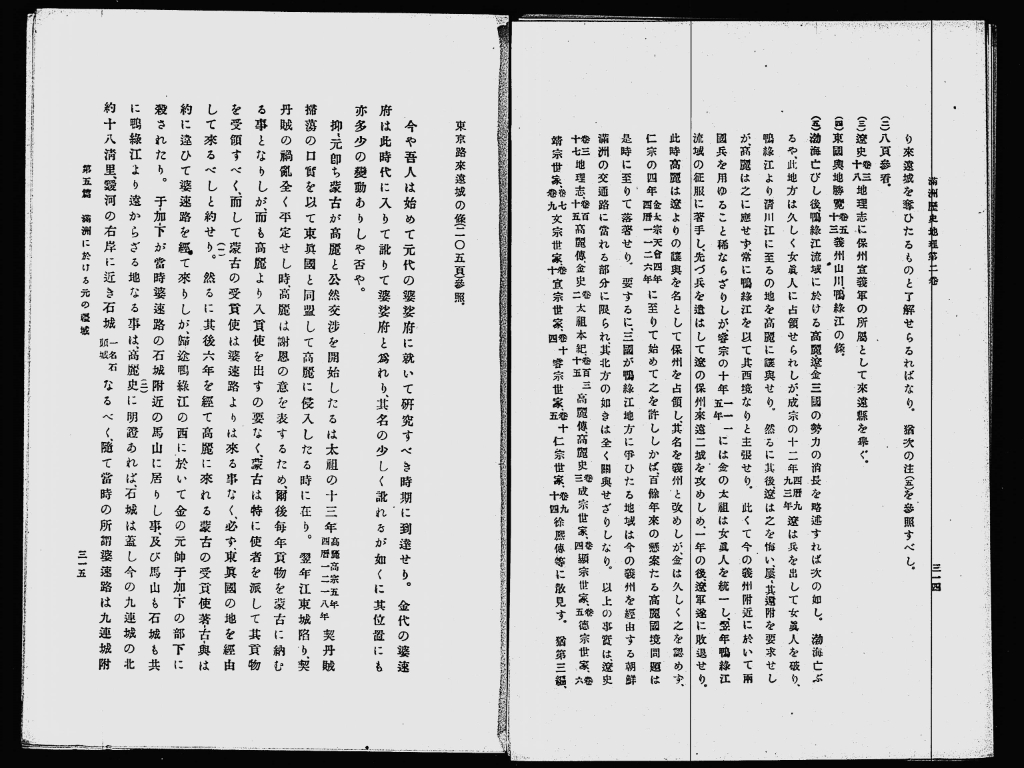 滿洲歷史地理第二卷
三一四
り來遠城を奪ひたるものと了解せらるればなり。猶次の注(五)を參照すべし。
(二)八頁參看。
(三)遼史卷三十八地理志に保州宣義軍の所屬として來遠縣を擧ぐ。
(四)東國輿地勝覽卷五十三義州山川、鴨綠江の條。
(五)渤海亡びし後、鴨綠江流域に於ける高麗、遼、金三國の勢力の消長を略述すれば次の如し。渤海亡ぶ
るや此地方は久しく女眞人に占領せられしが、成宗の十二年西曆九九三年遼は兵を出して女眞人を破り、
鴨綠江より淸川江に至るの地を高麗に讓與せり。然るに其後遼は之を悔い、屢其還附を要求せし
が高麗は之に應せず、常に鴨綠江を以て其西境なりと主張せり。此くて今の義州附近に於いて兩
國兵を用ゆること稀ならざりしが、睿宗の十年一一一五年には金の太祖は女眞人を統一し、翌年鴨綠江
流域の征服に著手し、先づ兵を遣はして遼の保州、來遠二城を攻めしめ、一年の後遼軍遂に敗退せり。
此時高麗は遼よりの讓與を名として保州を占領し、其名を義州と改めしが、金は久しく之を認めず、
仁宗の四年金太宗天會四年西曆一一二六年に至りて始めて之を許ししかば、百餘年來の懸案たる高麗國境問題は
是時に至りて落著せり。要するに、三國が鴨綠江地方に爭ひたる地域は今の義州を經由する朝鮮
滿洲の交通路に當れる部分に限られ、其北方の如きは全く關與せざりしなり。以上の事實は、遼史
卷三十七地理志、卷百十五高麗傳、金史卷二太祖本紀、卷百三十五高麗傳、高麗史卷三成宗世家、卷四顯宗世家、卷五德宗世家、卷六
靖宗世家、卷七卷九文宗世家、卷十宣宗世家、卷十四睿宗世家、卷十五仁宗世家、卷九十四徐熙傳等に散見す。猶第三編、
東京路來遠城の條(二〇五頁)參照。
今や吾人は始めて元代の婆娑府に就いて硏究すべき時期に到達せり。金代の婆速
府は此時代に入りて訛りて婆娑府と爲れり、其名の少しく訛れるが如くに其位置にも
亦多少の變動ありしや否や。
抑、元卽ち蒙古が高麗と公然交涉を開始したるは太祖の十三年高麗高宗五年西曆一二一八年契丹賊
掃蕩の口實を以て東眞國と同盟して高麗に侵入したる時に在り。翌年江東城陷り、契
丹賊の禍亂全く平定せし時高麗は謝恩の意を表するため、爾後每年貢物を蒙古に納む
る事となりしが、而も高麗より入貢使を出すの要なく、蒙古は特に使者を派して其貢物
を受領すべく、而して蒙古の受貢使は婆速路よりは來る事なく、必ず東眞國の地を經由
して來るべしと約せり。(一)然るに其後六年を經て高麗に來れる蒙古の受貢使著古與は
約に違ひて婆速路を經て來りしが、歸途鴨綠江の西に於いて金の元帥于加下の部下に
殺されたり。于加下が當時婆速路の石城附近の馬山に居りし事、及び馬山も石城も共
に鴨綠江より遠からざる地なる事は、高麗史に明證あれば、(二)石城は蓋し今の九連城の北
約十八淸里、靉河の右岸に近き石城一名石頭城なるべく、隨て當時の所謂婆速路は九連城附
第五篇 滿洲に於ける元の疆域
三一五